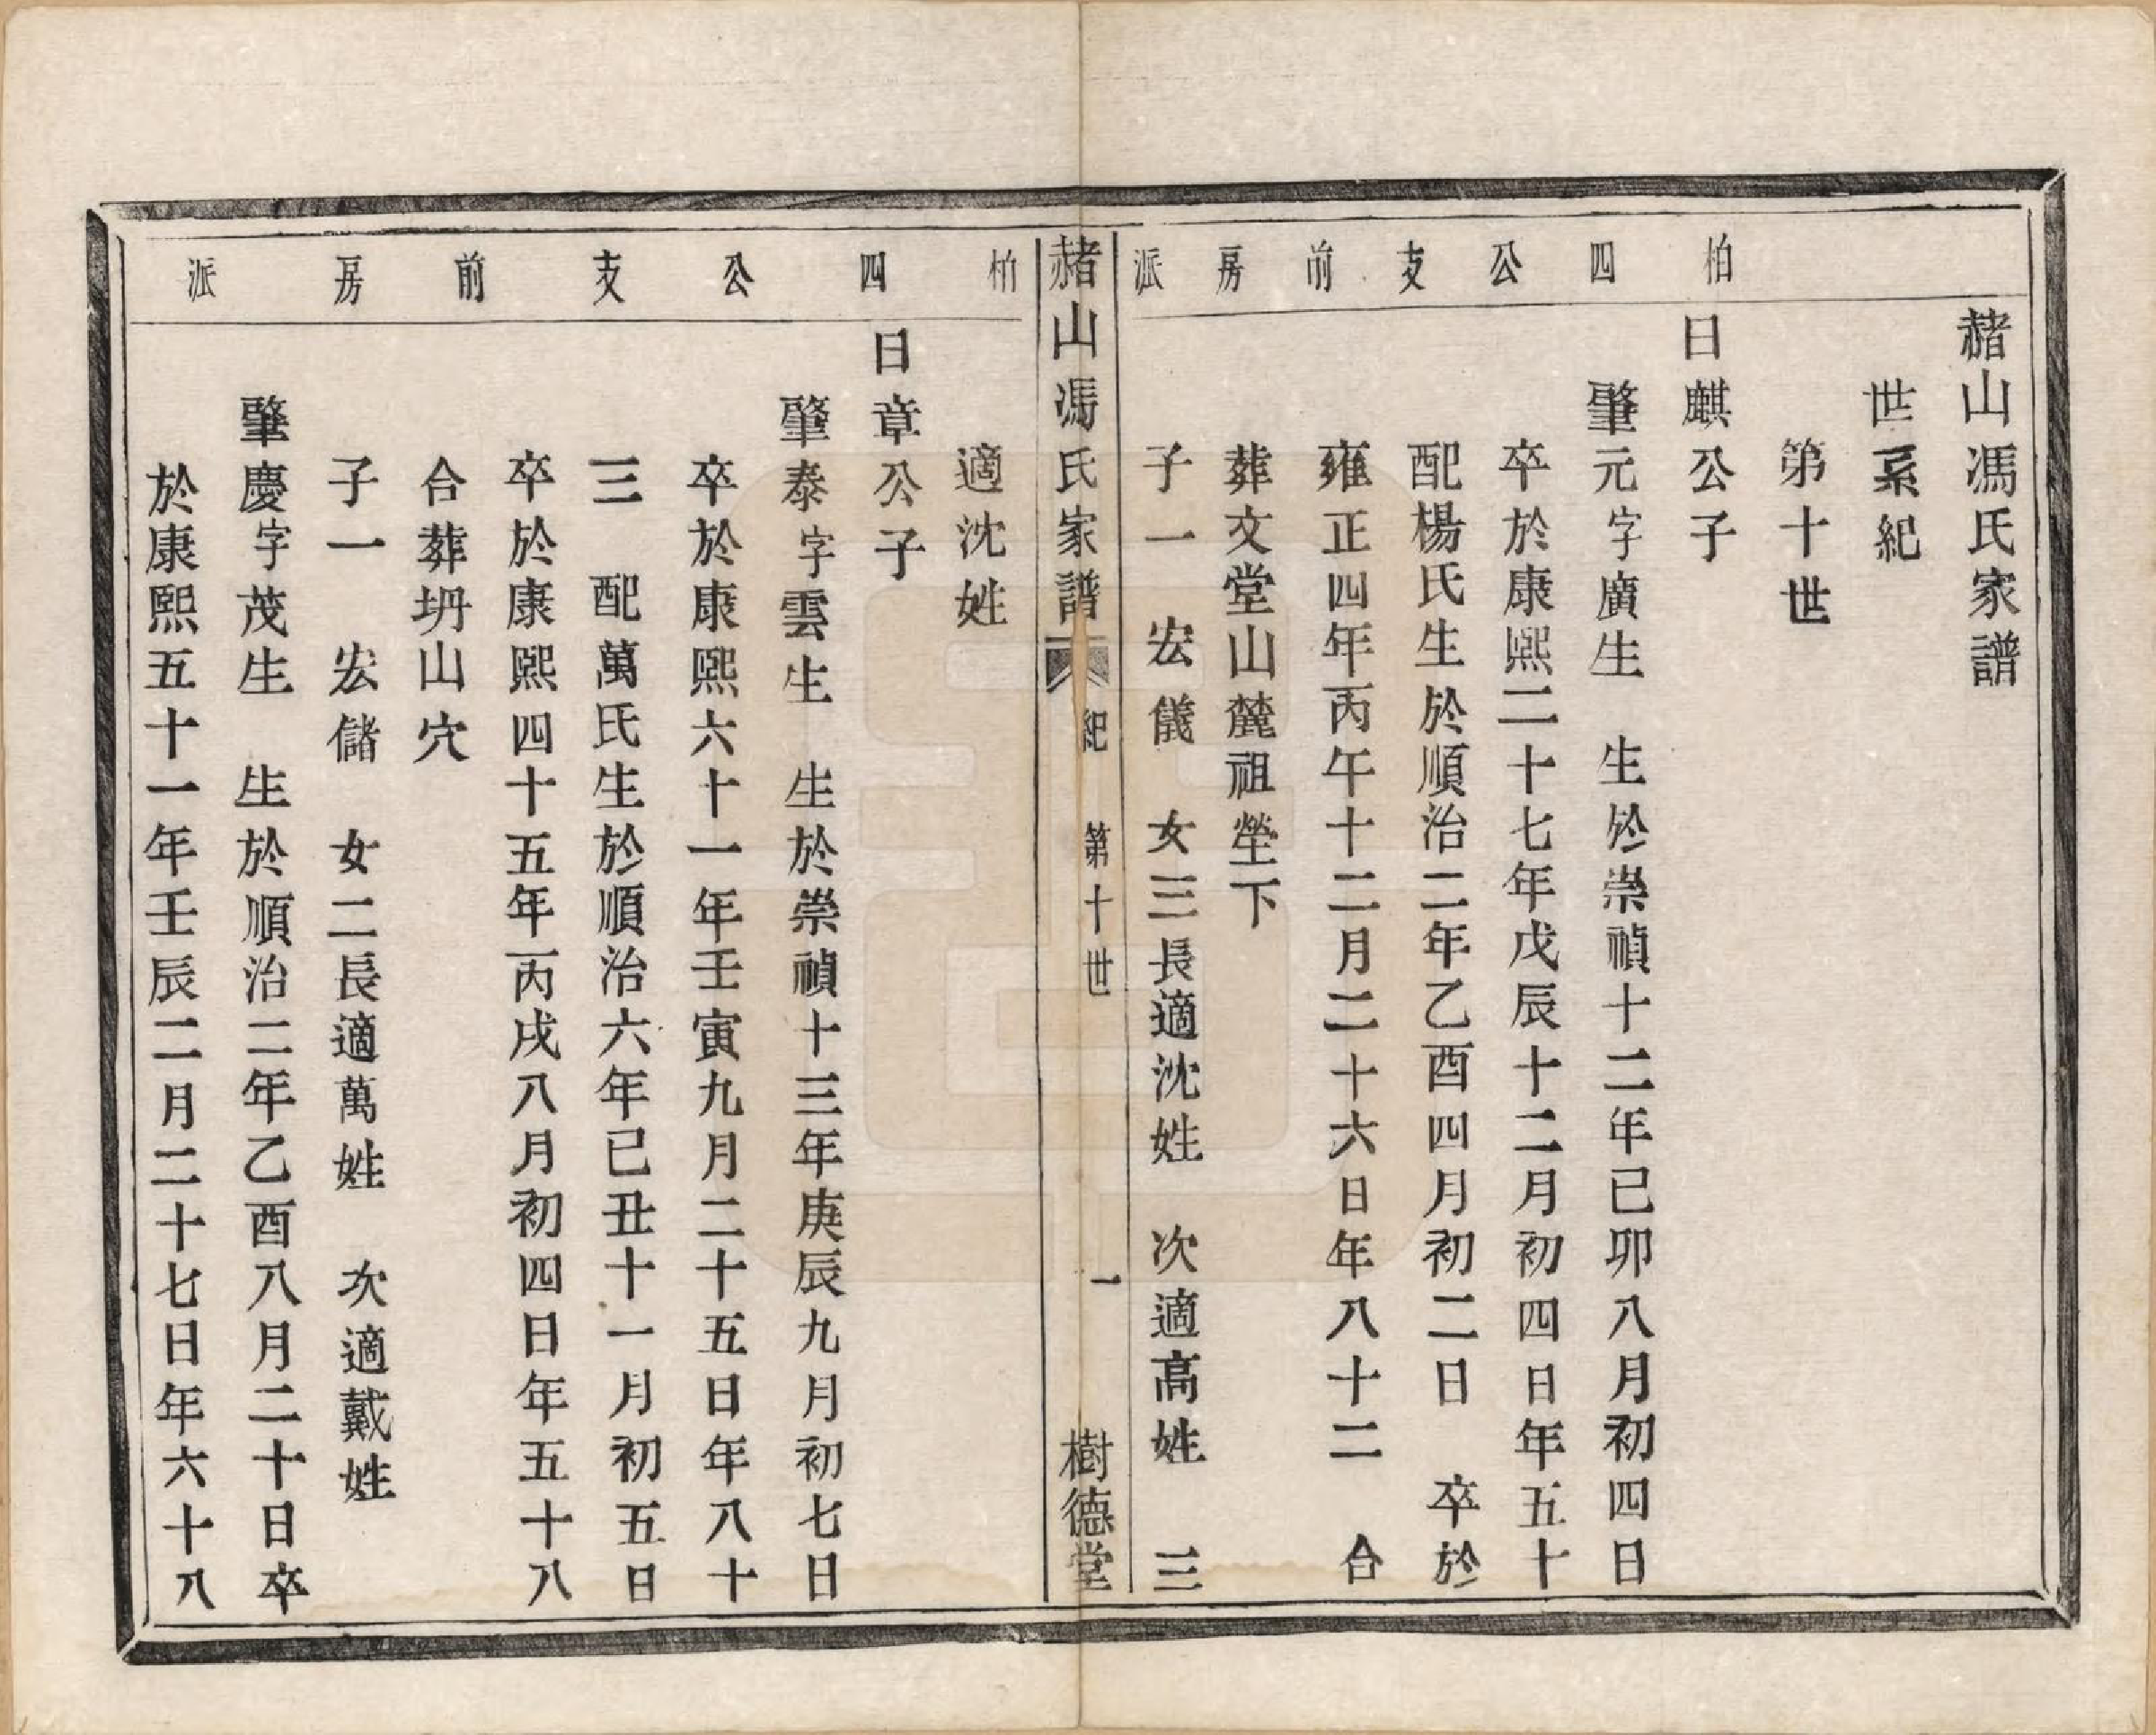 柏四公支前房派
赭山馮氏家譜
世系紀
第十世
日麒公子
肇元字廣生　生於崇禎十二年己卯八月初四日
卒於康熙二十七年戊辰十二月初四日年五十
配楊氏生於順治二年乙酉四月初二日　卒於
雍正四年丙午十二月二十六日年八十二　合
葬文堂山麓祖塋下
子一　宏儀　女三長適沈姓　次適高姓　三
赭山馮氏家譜　紀　第十世　一　樹德堂
柏四公支前房派
適沈姓
日章公子
肇泰字雲生　生於崇禎十三年庚辰九月初七日
卒於康熙六十一年壬寅九月二十五日年八十
三　配萬氏生於順治六年已丑十一月初五日
卒於康熙四十五年丙戌八月初四日年五十八
合葬坍山穴
子一　宏儲　女二長適萬姓　次適戴姓
肇慶字茂生　生於順治二年乙酉八月二十日卒
於康熙五十一年壬辰二月二十七日年六十八